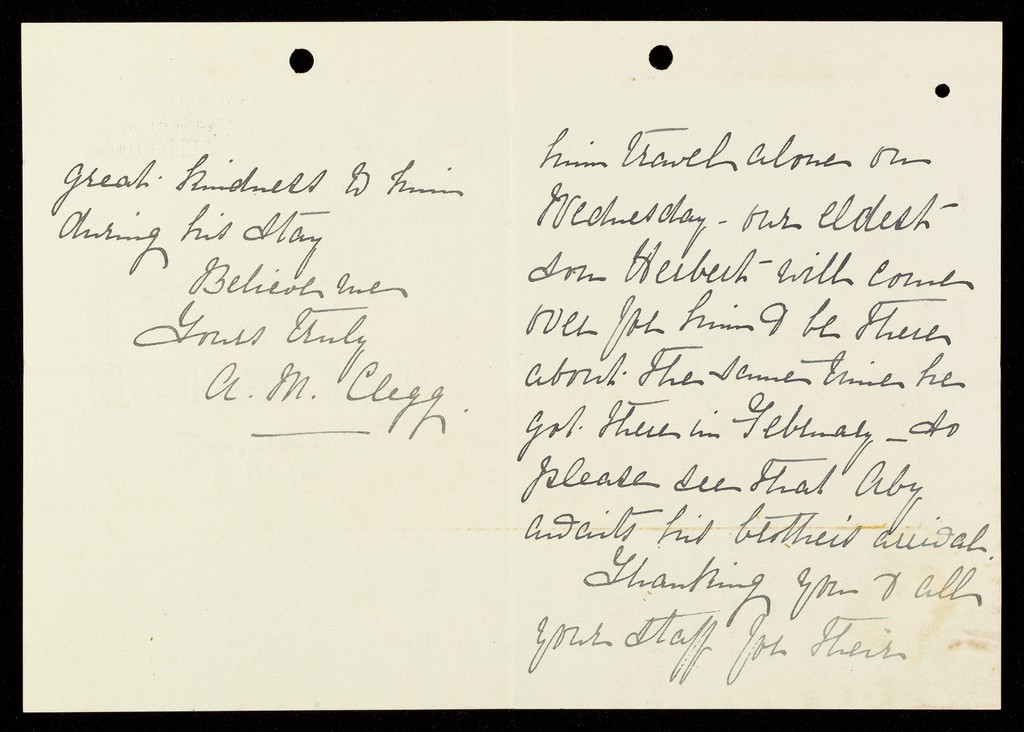 him travel alone on
Wednesday - our eldest
son Herbert will come
over for him & be there
about the same time he
got there in February - so
please see that Aby
awaits his brother's arrival.
Thanking you & all
your staff for their
great kindness to him
during his stay
Believe me
Yours truly
A. M. Clegg.